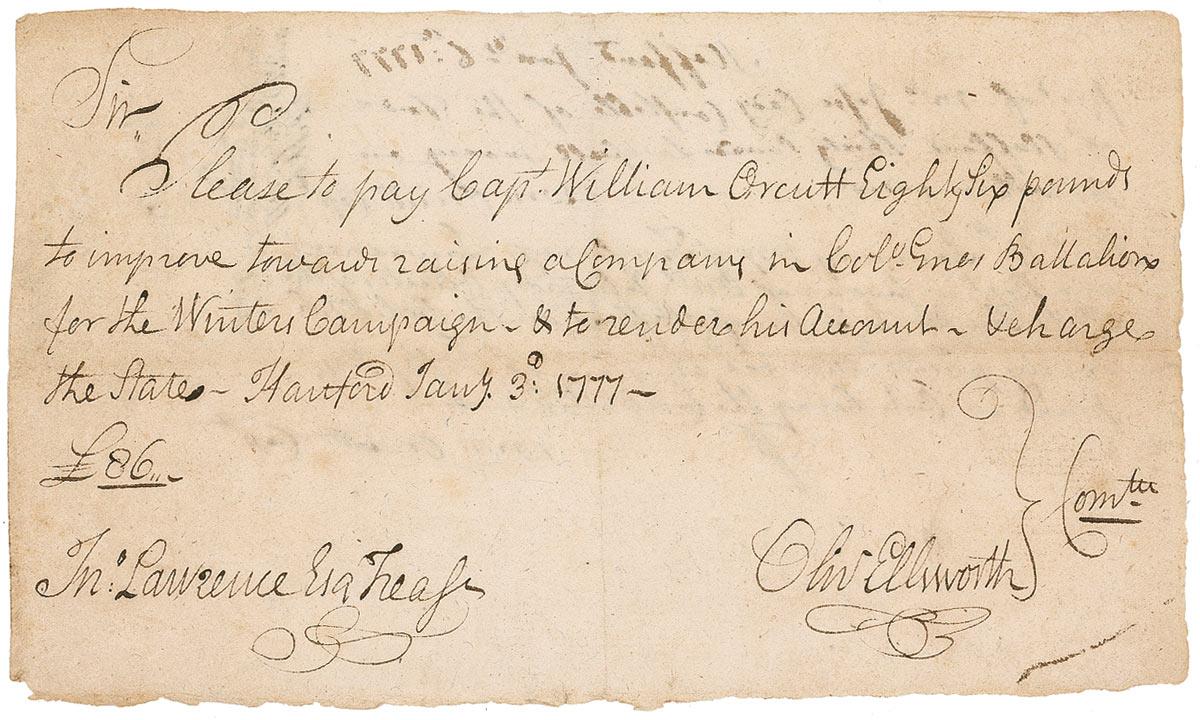 Sir,
Please to pay Capt. William Orcutt Eighty Six pounds
to improve towards raising a Company in Colo. Enos Battalion
for the Winters Campaign - & to render his Account - & charge
the State - Hartford Jany. 3d. 1777 -
£86 ,, -
Jno. Lawrence Esq Treasr
Olivr Ellsworth } Comtte